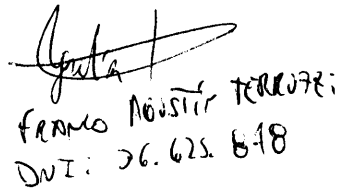 FRANCO AGUSTIN TERRUZZI
DNI: 36.625.818